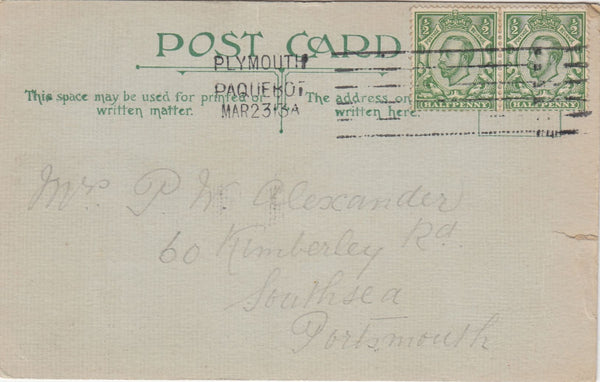 POST CARD
½ ½ ½ ½
PLYMOUTH
PAQUEBOT
MAR 23 13A
HALFPENNY HALFPENNY
This space may be used for printed or
written matter.
The address on
written here.
Mrs P. W. Alexander
60 Kimberley Rd
Southsea
Portsmouth